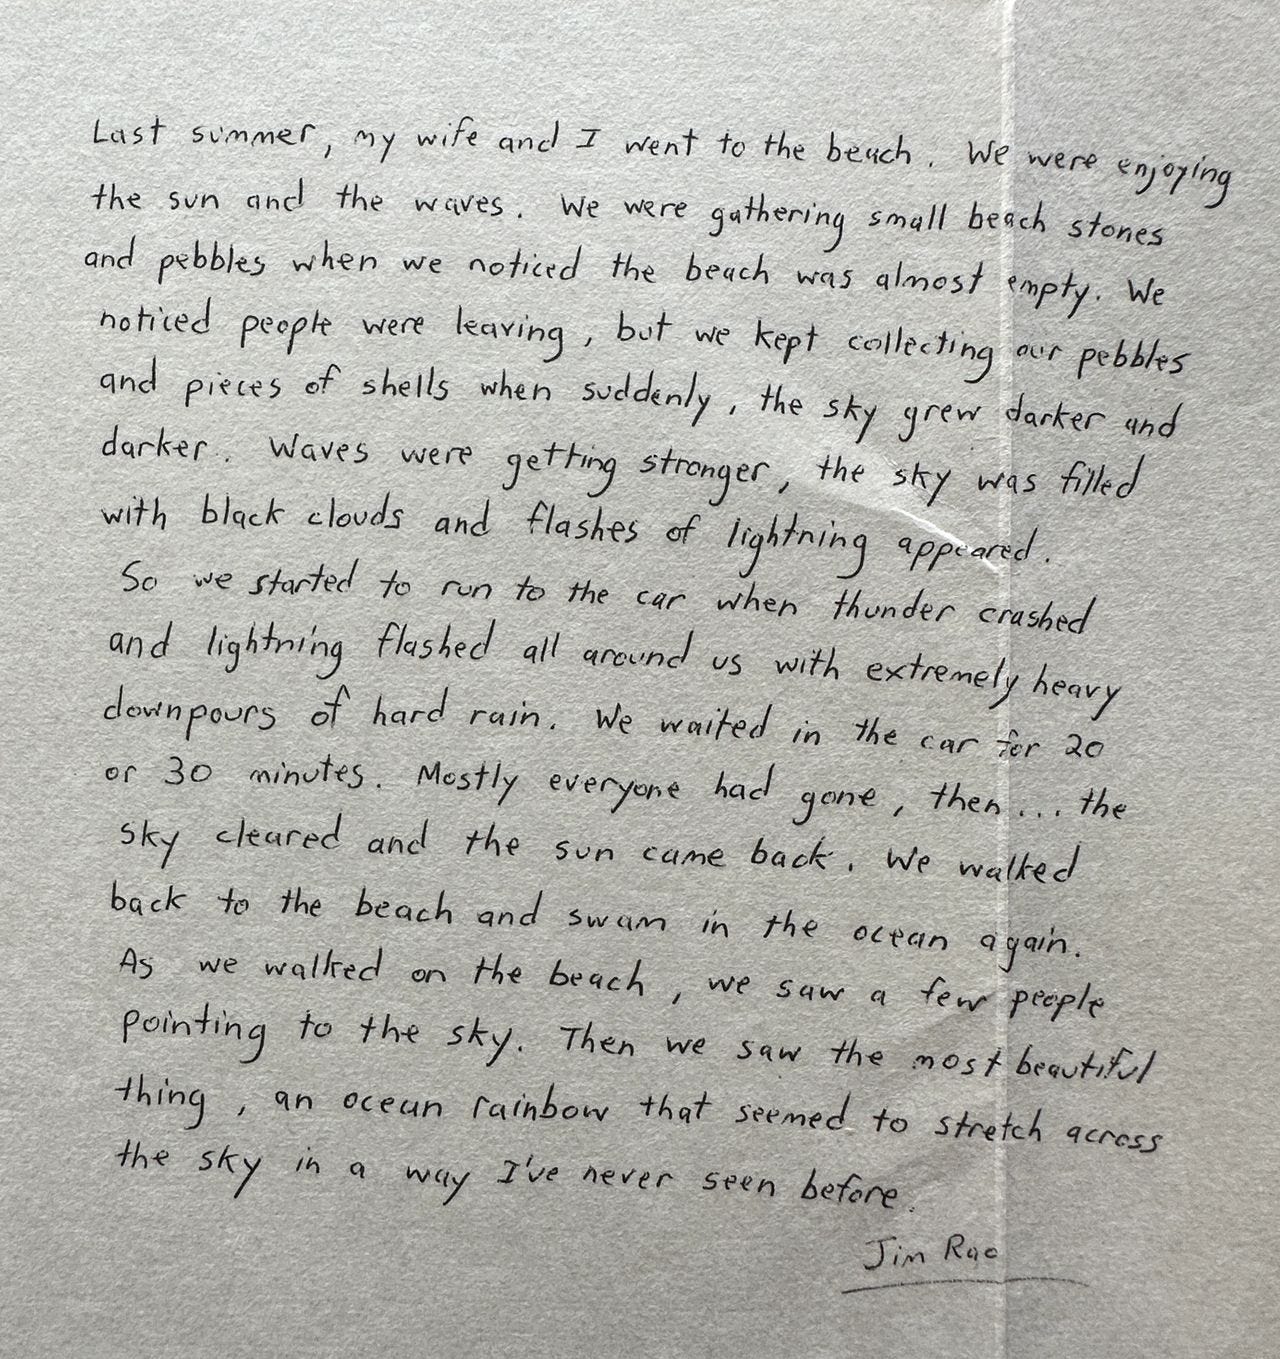 Last summer, my wife and I went to the beach. We were enjoying
the sun and the waves. We were gathering small beach stones
and pebbles when we noticed the beach was almost empty. We
noticed people were leaving, but we kept collecting our pebbles
and pieces of shells when suddenly, the sky grew darker and
darker. Waves were getting stronger, the sky was filled
with black clouds and flashes of lightning appeared.
So we started to run to the car when thunder crashed
and lightning flashed all around us with extremely heavy
downpours of hard rain. We waited in the car for 20
or 30 minutes. Mostly everyone had gone, then... the
sky cleared and the sun came back. We walked
back to the beach and swam in the ocean again.
As we walked on the beach, we saw a few people
pointing to the sky. Then we saw the most beautiful
thing, an ocean rainbow that seemed to stretch across
the sky in a way I've never seen before.
Jim Rao